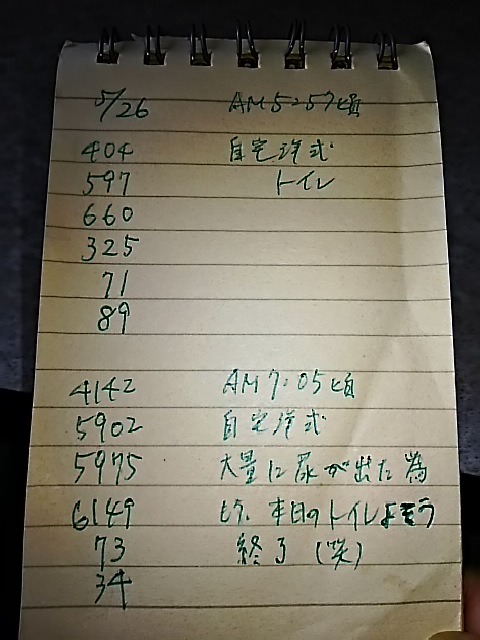 5/26 AM5:57頃
404 自宅洋式
597 トイレ
660
325
71
89
4142 AM7:05頃
5902 自宅洋式
5975 大量に尿が出た為
6149 もう、本日のトイレはもう
73 終了(笑)
34